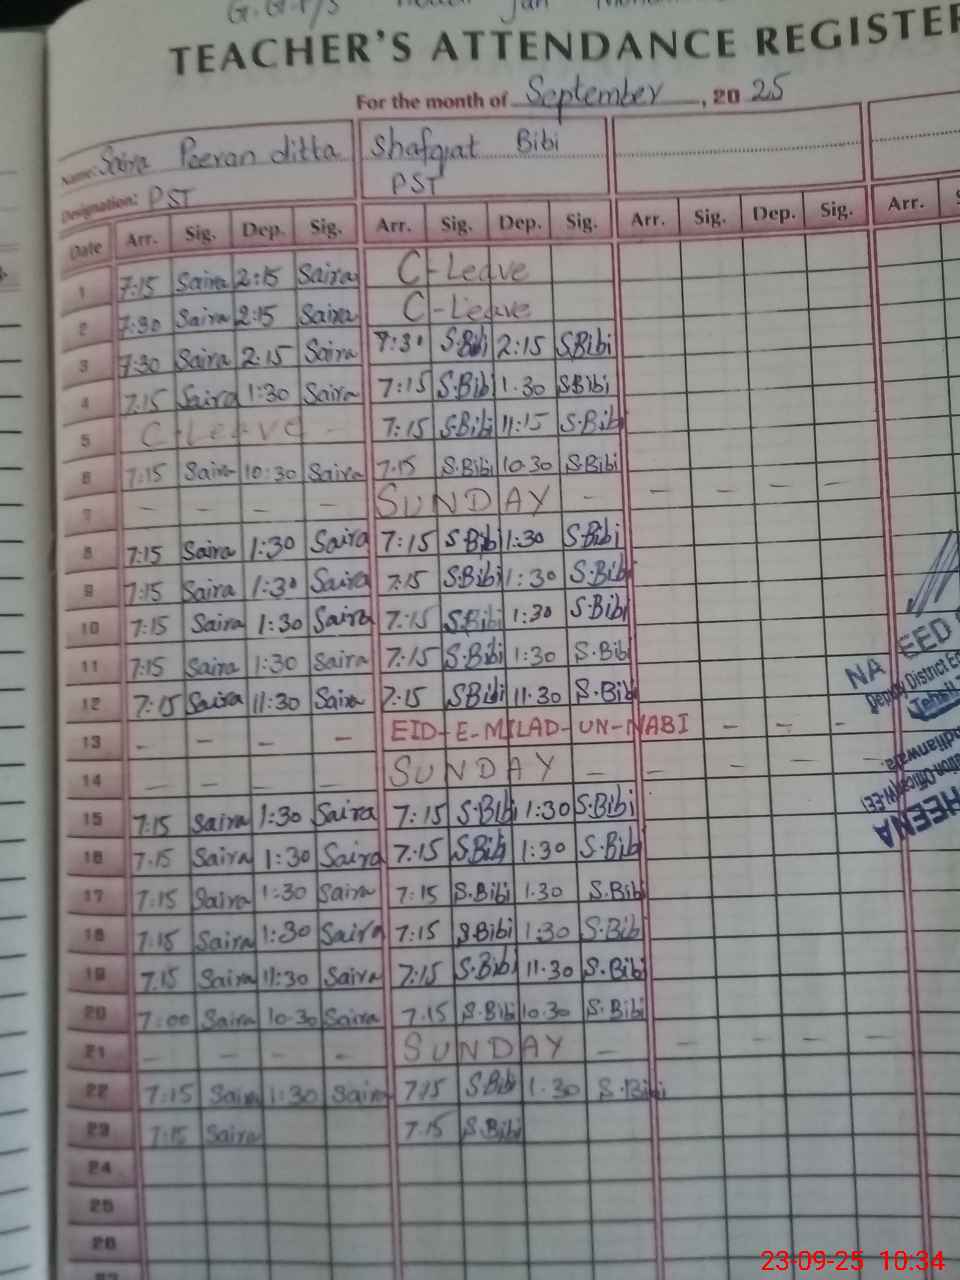 G.G.P/S
TEACHER'S ATTENDANCE REGISTER
For the month of September, 20 25
Name: Saira Peeran ditta Shafqat Bibi
Designation: PST PST
Date Arr. Sig. Dep. Sig. Arr. Sig. Dep. Sig. Arr. Sig. Dep. Sig. Arr.
1 7:15 Saira 2:15 Saira C-Leave
2 7:30 Saira 2:15 Saira C-Leave
3 7:30 Saira 2:15 Saira 7:30 S.Bibi 2:15 S.Bibi
4 7:15 Saira 1:30 Saira 7:15 S.Bibi 1.30 S.Bibi
5 C-Leave - 7:15 S.Bibi 11:15 S.Bibi
6 7:15 Saira 10:30 Saira 7.15 S.Bibi 10.30 S.Bibi
7 - - - - SUNDAY - - - - -
8 7:15 Saira 1:30 Saira 7:15 S.Bibi 1:30 S.Bibi
9 7:15 Saira 1:30 Saira 7:15 S.Bibi 1:30 S.Bibi
10 7:15 Saira 1:30 Saira 7:15 S.Bibi 1:30 S.Bibi
11 7:15 Saira 1:30 Saira 7:15 S.Bibi 1:30 S.Bibi
12 7:15 Saira 11:30 Saira 7:15 S.Bibi 11.30 S.Bibi
13 - - - - EID-E-MILAD-UN-NABI - - -
14 - - - - SUNDAY - - - - -
15 7:15 Saira 1:30 Saira 7:15 S.Bibi 1:30 S.Bibi
16 7.15 Saira 1:30 Saira 7:15 S.Bibi 1:30 S.Bibi
17 7:15 Saira 1:30 Saira 7:15 S.Bibi 1.30 S.Bibi
18 7:15 Saira 1:30 Saira 7:15 S.Bibi 1:30 S.Bibi
19 7:15 Saira 11:30 Saira 7:15 S.Bibi 11.30 S.Bibi
20 7:00 Saira 10.30 Saira 7.15 S.Bibi 10.30 S.Bibi
21 - - - - SUNDAY - - - - -
22 7:15 Saira 1:30 Saira 7:15 S.Bibi 1.30 S.Bibi
23 7:15 Saira 7.15 S.Bibi
24
25
26
NA EED
Deputy District
Tehsil
HEENA
23-09-25 10:34